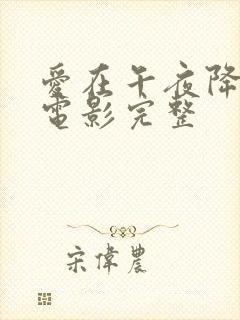 愛在午夜降
電影完整
宋偉農